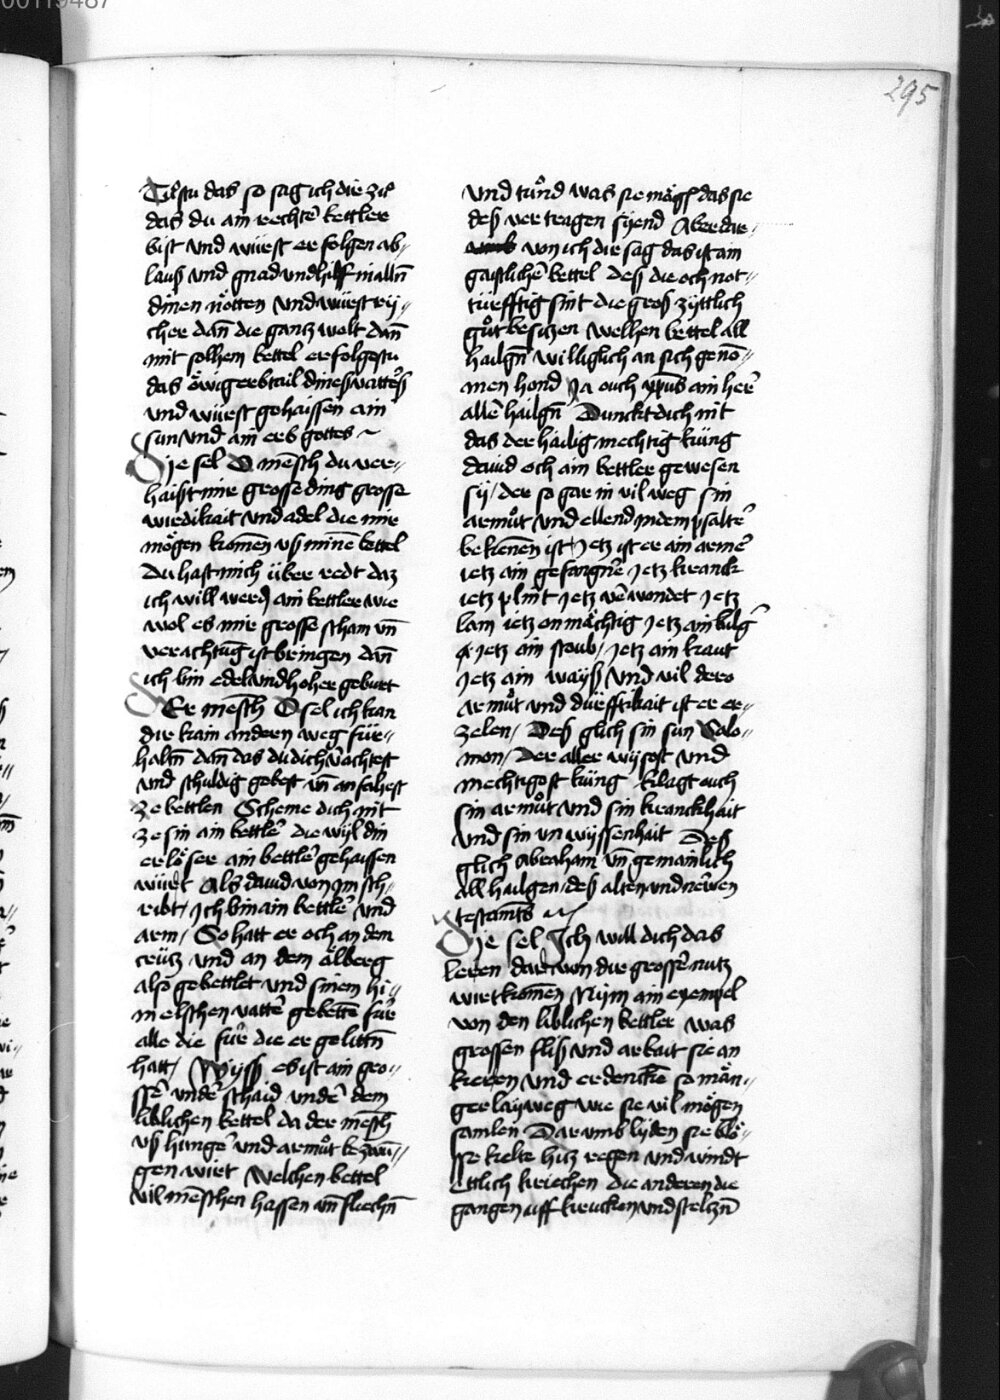 00119487
295
Tuͦstu das so sag ich dir zuͦ
das du ain rechter̄ bettler
bist vnd würst er folgen ab〃
lauß vnd gnad vnd hilff in alln̄
dinen nötten vnd würst rÿ〃
cher dan̄ die gantz welt dan̄
mit solhem bettel erfolgestu
das öwig erbtail dines vatters
vnd würst gehaissen ain
sun vnd ain erb gottes ~
Die sel O mēsch du ver〃
haist mir grosse ding grosse
wirdikait vnd adel die mir
mögen komen vß minē bettel
du hast mich über redt daz
ich will werdē ain bettler wie
wol es mir grosse scham vn̄
verachtūg ist bringen dan̄
ich bin edel vnd hoher geburt
Der mēsch O sel ich kan
dir kain andern weg für〃
haltn̄ dan̄ das du dich v̄achtest
vnd schuldig gebest vn̄ anfahest
ze bettlen Scheme dich nit
ze sin ain bettler̄ die wÿl din
erlöser ain bettler̄ gehaissen
würt Als dauid von jm sch〃
ribt / Ich bin ain bettler̄ vnd
arm / So hatt er och an dem
crütz vnd an dem ölberg
also gebettlet vnd sinem hi〃
melschen vatter̄ gebettē für
alle die für die er gelittn̄
hatt / Wÿß es ist ain gro〃
ssēr vnder̄ schaid vnder̄ dem
liblichen bettel da der mēsch
vß hunger̄ vnd armuͦt bezwū〃
gen wirt Welchen bettel
vil mēschen hassen vn̄ fliechn̄
vnd tuͦnd was sie mögē das sie
deß ver tragen sÿend Aber dar〃
von ich dir sag das ist ain
gaistlichēr bettel deß die och not〃
türfftig sint die groß zÿttlich
guͦt besitzen Welhen bettel all
hailgn̄ williglich an sich genō〃
men hond Ja ouch xp̄us ain herr̄
aller̄ hailgn̄ Dunckt dich nit
das der hailig mechtig küng
dauid och ain bettler gewesen
sÿ / der so gar in vil weg sin
armuͦt vnd ellend in dem psalter̄
bekennen ist Jetz ist er ain armer̄
ietz ain gefangner̄ Jetz kranck
ietz plint Jetz v̄wondet Jetz
lam ietz onmächtig Jetz ain bilgr̄
Jetz ain stoub / Jetz ain kraut
Jetz ain wayß vnd vil dero
armuͦt vnd dürfftikait ist er er〃
zelen / Deß glich sin sun Salo〃
mon / Der aller wÿsost vnd
mechtigost küng klagt ouch
sin armuͦt vnd sin kranckhait
vnd sin vnwÿssenhait Deß
glich Abraham vn̄ gemainlich
all hailgen deß alten vnd newen
testamēts
Die sel Ich will dich das
leren dar von dir grosser̄ nutz
wirt komen Nÿm ain exempel
von den liblichen bettler was
grossen fliß vnd arbait sie an
kieren vnd erdenckē so män〃
gerlaÿ weg wie sie vil mögen
samlen Dar vmb lÿden sie blö〃
sse kelte hitz regen vnd windt
Ettlich kriechen die anderen die
gangen uff krucken vnd steltzn̄